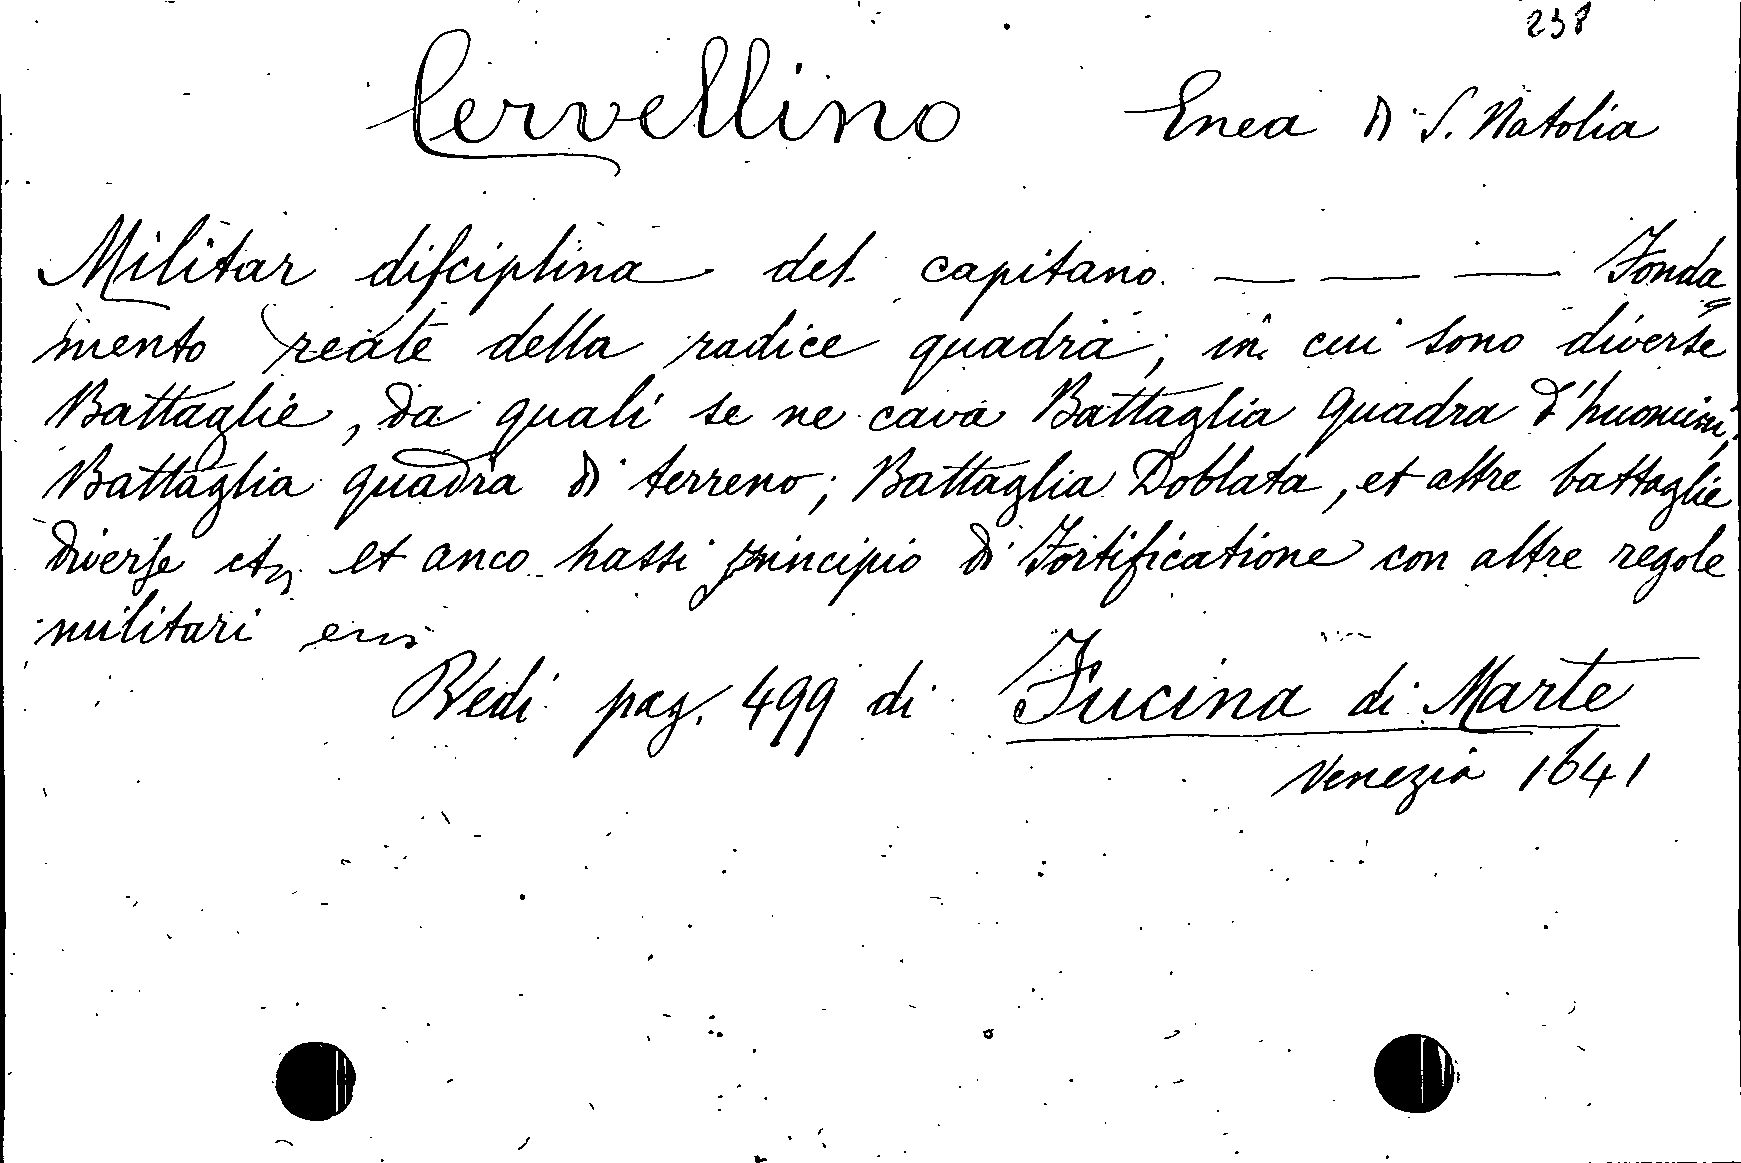 238
Cervellino Enea di S. Natolia
Militar diſciplina del capitano — — — Fonda=
mento reale della radice quadra; in cui sono diverse
Battaglie, da quali se ne cava Battaglia Quadra d'huomini;
Battaglia quadra di terreno; Battaglia Doblata, et altre battaglie
diverſe etc. et anco hassi principio di Fortificatione con altre regole
militari
Vedi pag. 499 di Fucina di Marte
Venezia 1641